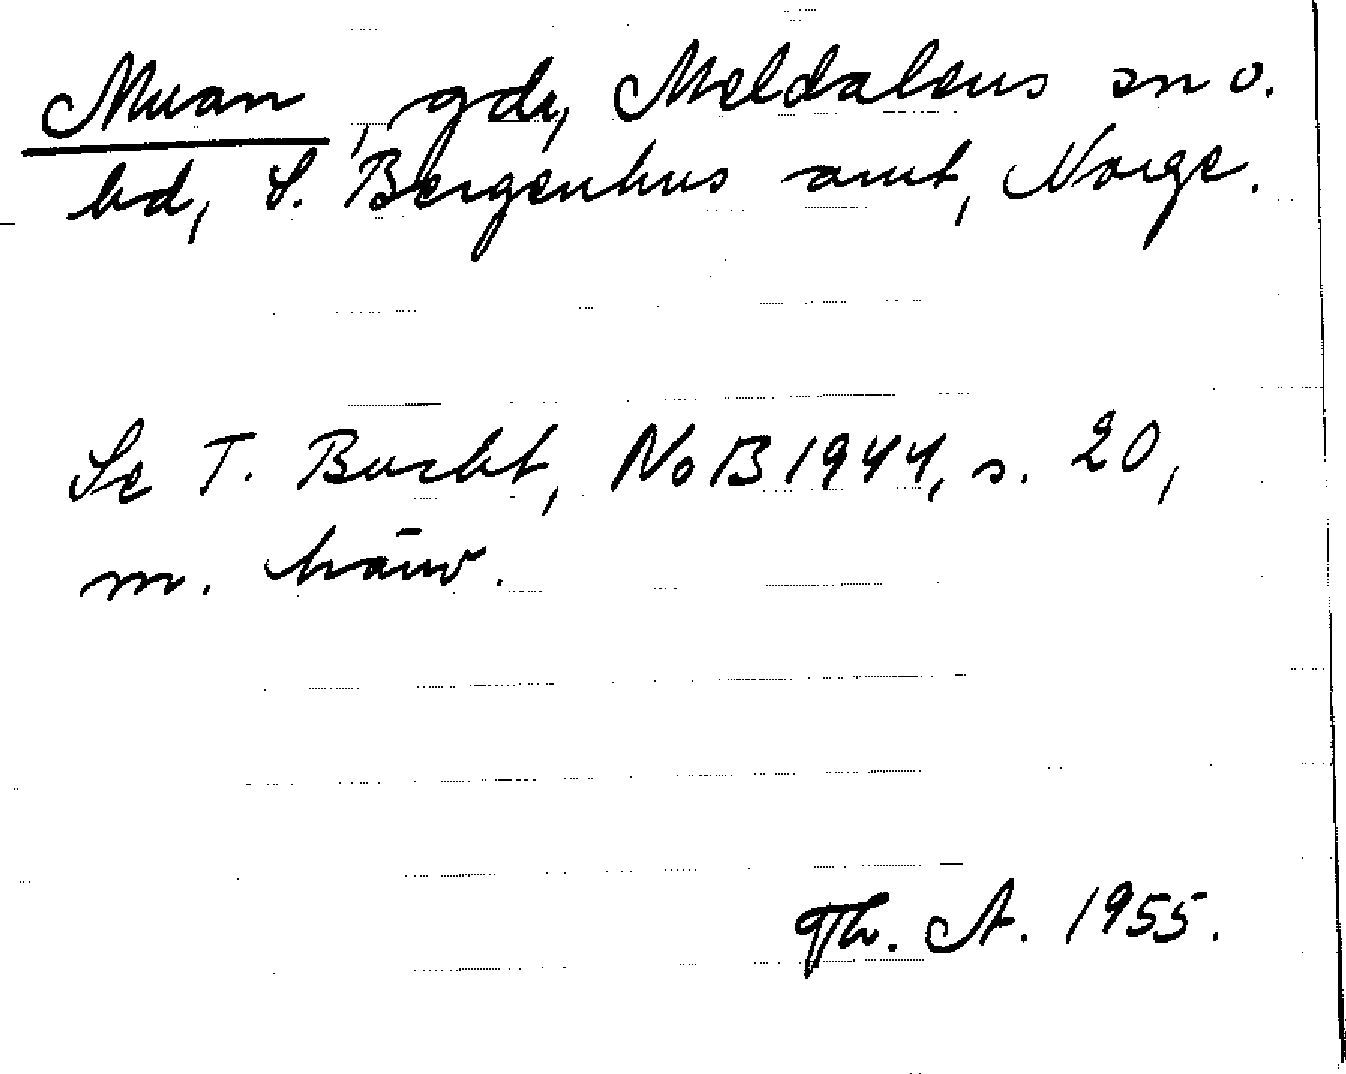 Muan, gdr, Meldalens sn o.
hd, S. Bergenhus amt, Norge.
Se T. Bucht, NoB 1944, s. 20,
m. hänv.
Th. A. 1955.